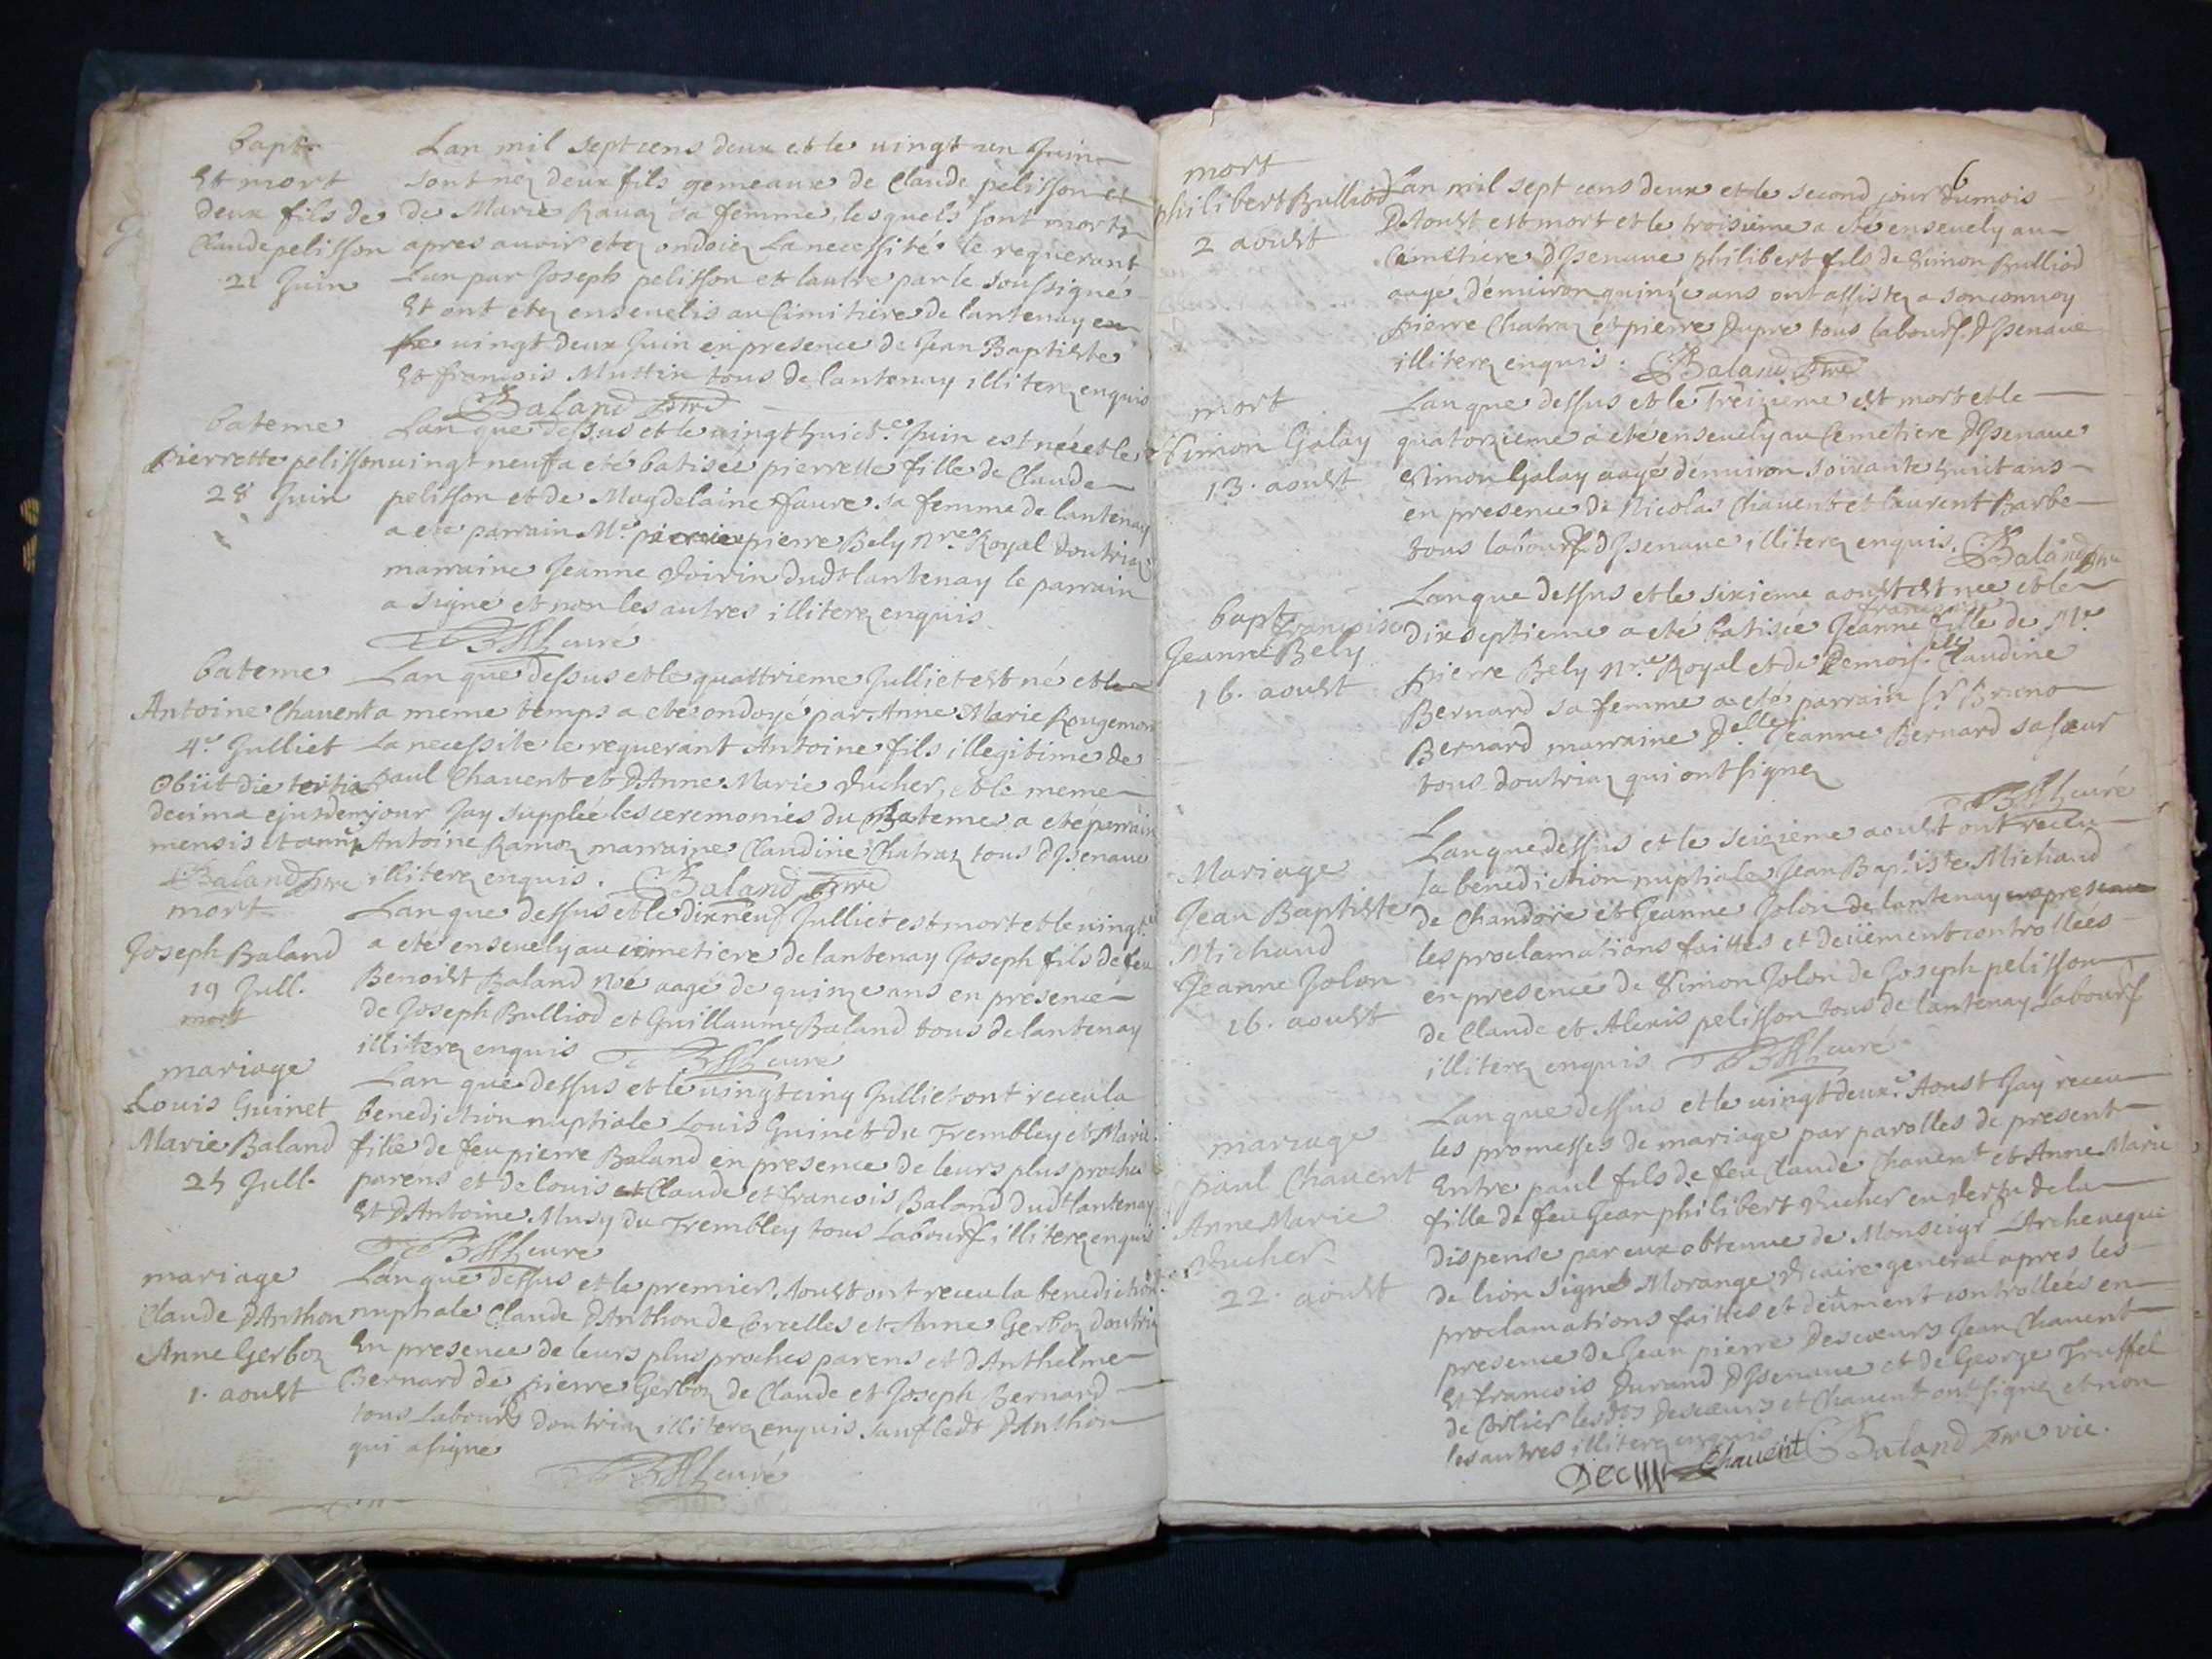 bapt.
Et mort
deux fils de
Claude pelisson
21 Juin
Lan mil sept cens deux et le vingt un Juin
sont néz deux fils gemeaux de Claude pelisson et
de Marie Ravaz sa femme, lesquels sont morts
apres avoir etez ondoiez La necessité le requerant
Lun par Joseph pelisson et lautre par le soussigné
Et ont etez ensevelis au Cimitiere de lantenay
vingt deux Juin en presence de Jean Baptiste
Et francois Muttin tous de lantenay illiterez enquis
Baland ptre
bateme
Pierrette pelisson
28 Juin
Lan que dessus et le vingt huict.e Juin est néé et le
vingt neuf a eté batiséé pierrette fille de Claude
pelisson et de Magdelaine faure sa femme de lantenay
a eté parrain M.e pierre Bely Nre Royal doutriaz
marraine Jeanne Doirin dudt lantenay le parrain
a signé et non les autres illiterez enquis
curé
bateme
Antoine Chavent
4.e Julliet
Obiit die tertia
decima ejusdem
mensis et anni
Baland ptre
Lan que dessus et le quattrieme Julliet est né et
a meme temps a eté ondoyé par Anne Marie Rougemon
La necessite le requerant Antoine fils illegitime de
paul Chavent et D'Anne Marie Ducher, et le meme
jour Jay suppléé les ceremonies du Bateme a eté parrain
Antoine Ramoz marraine Claudine Chatraz tous d'Izenave
illiterez enquis. Baland ptre
mort
Joseph Baland
19 Jull.
mort
Lan que dessus et le dix neuf Julliet est mort et le vingt.e
a eté ensevely au cimetiere de lantenay Joseph fils de feu
Benoist Baland Noé aagé de quinze ans en presence
de Joseph Bulliod et Guillaume Baland tous de lantenay
illiterez enquis curé
mariage
Louis Guinet
Marie Baland
25 Jull.
Lan que dessus et le vingt cinq Julliet ont receu la
benediction nuptiale Louis Guinet du Trembley et Marie
fille de feu pierre Baland en presence de leurs plus proches
parens et de louis et Claude et francois Baland dudt lantenay
Et D'Antoine Musy du Trembley tous Labourf illiterez enquis
curé
mariage
Claude D'Anthon
Anne Gerboz
1. aoust
Lan que dessus et le premier Aoust ont receu la benediction
nuptiale Claude D'Anthon de Corcelles et Anne Gerboz doutriaz
En presence de leurs plus proches parens et d'Anthelme
Bernard de pierre Gerboz de Claude et Joseph Bernard
tous Labours doutriaz illiterez enquis sauf ledt D'Anthon
qui a signé
curé
6
mort
philibert Bulliod
2 aoust
Lan mil sept cens deux et le second jour du mois
D'Aoust est mort et le troisieme a eté ensevely au
Cimetiere d'Izenave philibert fils de Simon Bulliod
aagé d'environ quinze ans ont assistez a son convoy
pierre Chatraz et pierre Dupre tous Labourf. d'Izenave
illiterez enquis. Baland ptre
mort
Simon Galay
13. aoust
Lan que dessus et le Treizieme est mort et le
quatorzieme a eté ensevely au Cemetiere d'Izenave
Simon Galay aagé d'environ soixante huit ans
en presence de Nicolas Chavent et laurent Barbe
tous labourf d'Izenave illiterez enquis. Baland ptre
bapt francoise
Jeanne Bely
16. aoust
Lan que dessus et le sixieme aoust est née et le
francoise
dix septieme a eté batiséé Jeanne fille de M.e
pierre Bely Nre Royal et de Demois.elle Claudine
Bernard sa femme a eté parrain Sr Bruno
Bernard marraine D.elle Jeanne Bernard sa soeur
tous doutriaz qui ont signez
curé
Mariage
Jean Baptiste
Michaud
Jeanne Jolon
16. aoust
Lan que dessus et le seizieme aoust ont receu
la benediction nuptiale Jean Baptiste Michaud
de Chandore et Jeanne Jolon de lantenay en presence
les proclamations faittes et deüement controlléés
en presence de Simon Jolon de Joseph pelisson
de Claude et Alexis pelisson tous de lantenay Labourf
illiterez enquis curé
mariage
paul Chavent
Anne Marie
Ducher
22. aoust
Lan que dessus et le vingt deux.e Aoust Jay receu
les promesses de mariage par parolles de present
Entre paul fils de feu Claude Chavent et Anne Marie
fille de feu Jean philibert Ducher en vertu de la
dispense par eux obtenue de Monseigr L'Archeveque
de lion signé Morange Vicaire general apres les
proclamations faittes et deüment controlléés en
presence de Jean pierre Descoeurs Jean Chavent
Et francois Durand D'Izenave et de George Truffel
de Corlier lesdts Descoeurs et Chavent ont signez et non
les autres illiterez enquis
Chavent Baland ptre vic.